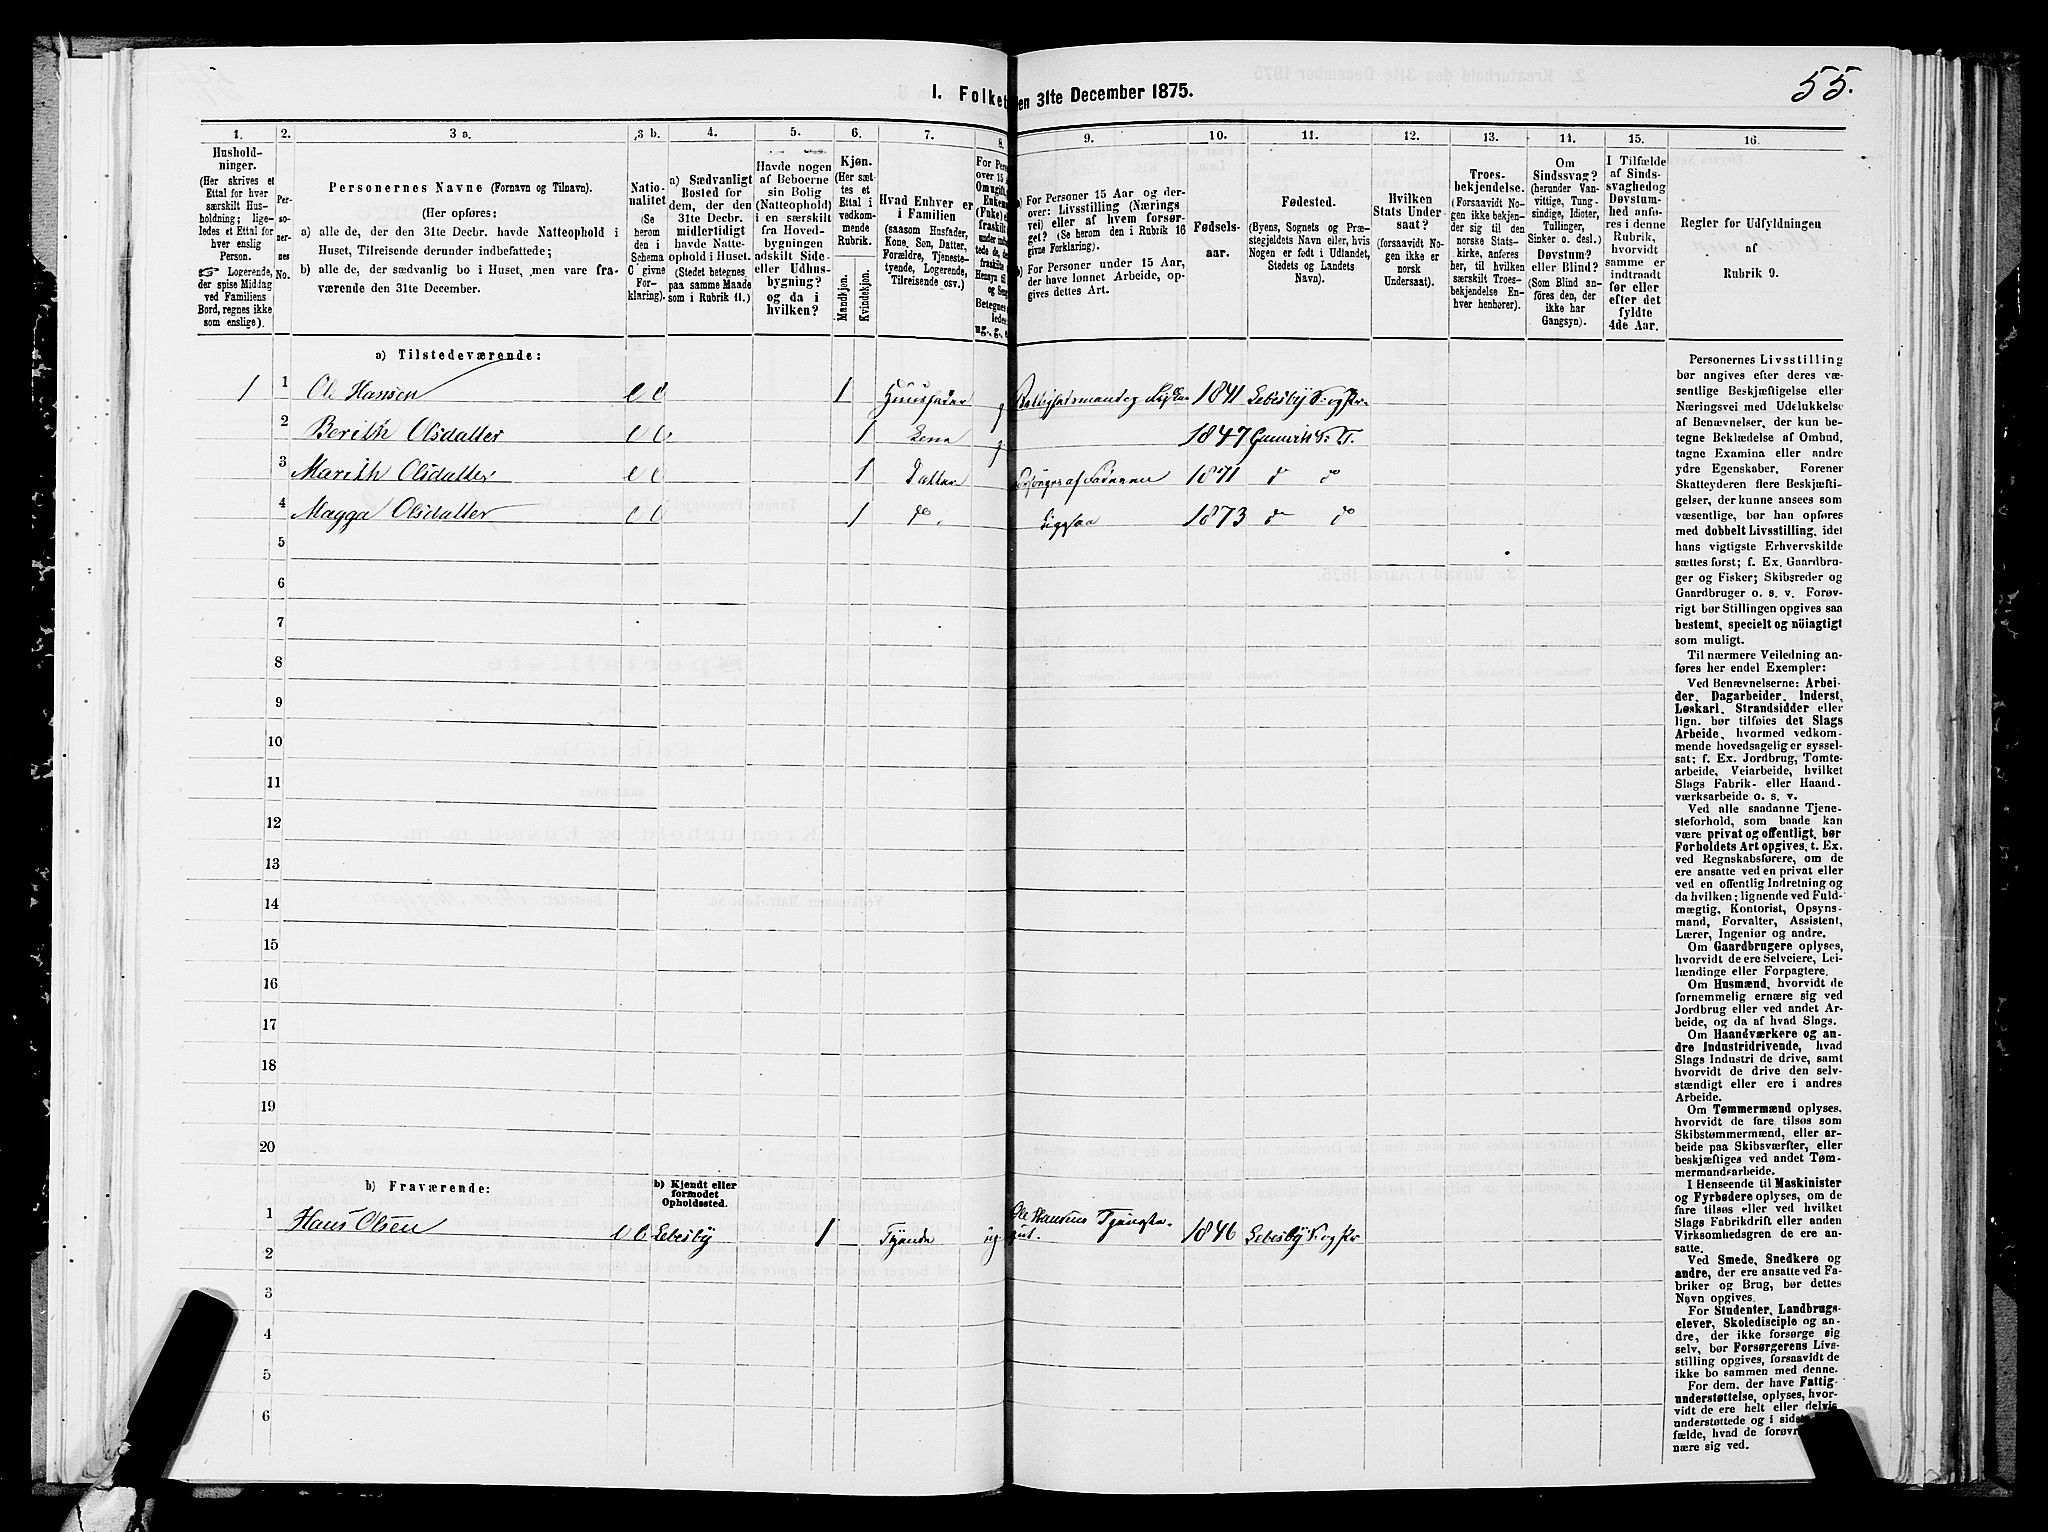 I. Folket
en 31te December 1875.
55.
1.
2.
3 a.
3 b.
4.
5.
6.
7.
8.
9.
10.
11.
12.
13.
14.
15.
16.
Hushold-
ninger.
(Her skrives et
Ettal for hver
særskilt Hus-
holdning; lige-
ledes et Ettal for
hver enslig
Person.
☞ Logerende,
der spise Middag
ved Familiens
Bord, regnes ikke
som enslige).
Per-
so-
ner-
nes
No.
Personernes Navne (Fornavn og Tilnavn).
(Her opføres:
a) alle de, der den 31te Decbr. havde Natteophold i
Huset, Tilreisende derunder indbefattede;
b) alle de, der sædvanlig bo i Huset, men vare fra-
værende den 31te December.
Natio-
nalitet
(Se
herom
den i
Schema
C givne
For-
klaring).
a) Sædvanligt
Bosted for
dem, der den
31te Decbr.
midlertidigt
havde Natte-
ophold i Huset.
(Stedet betegnes
paa samme Maade
som i Rubrik 11.)
Havde nogen
af Beboerne
sin Bolig
(Natteophold)
i en særskilt
fra Hoved-
bygningen
adskilt Side-
eller Udhus-
bygning?
og da i
hvilken?
Kjøn.
(Her sæt-
tes et
Ettal i
vedkom-
mende
Rubrik.
Mandkjøn.
Kvindekjøn.
Hvad Enhver er
i Familien
(saasom Husfader,
Kone, Søn, Datter,
Forældre, Tjeneste-
tyende, Logerende,
Tilreisende osv.)
For Pers
over 15
Om ugift,
Enkem
(Enke) e
fraskilt
under indb
tede de, de
fraskilte
Hensyn til
og Sen
Betegnes
ledes
ug., g., e
a) For Personer 15 Aar og der-
over: Livsstilling (Nærings
vei) eller af hvem forsør-
get? (Se herom den i Rubrik 16
givne Forklaring).
b) For Personer under 15 Aar,
der have lønnet Arbeide, op-
gives dettes Art.
Fødsels-
aar.
Fødested.
(Byens, Sognets og Præ-
stegjeldets Navn eller, hvis
Nogen er født i Udlandet,
Stedets og Landets
Navn).
Hvilken
Stats Under-
saat?
(forsaavidt No-
gen ikke er
norsk
Undersaat).
Troes-
bekjendelse.
(Forsaavidt Nogen
ikke bekjen-
der sig til den
norske Stats-
kirke, anføres
her, til hvilken
særskilt Troes-
bekjendelse En-
hver henhører).
Om
Sindssvag?
(herunder Van-
vittige, Tung-
sindige, Idioter,
Tullinger,
Sinker o. desl.)
Døvstum?
eller Blind?
(Som Blind an-
føres den, der
ikke har
Gangsyn).
I Tilfælde
af Sinds-
svaghed og
Døvstum-
hed anfø-
res i denne
Rubrik,
hvorvidt
samme er
indtraadt
før eller
efter det
fyldte
4de Aar.
Regler for Udfyldningen
af
Rubrik 9.
a) Tilstedeværende:
1 1 Ole Hansen 1 Huusfader g 1841 Lebesby S. og Pr.
2 Berith Olsdatter 1 Kone g 1847
3 Marith Olsdatter 1 Datter Forsørges af Faderen 1871 do do
4 Magga Olsdatter 1 do. Ligesaa 1873 do do
5
6
7
8
9
10
11
12
13
14
15
16
17
18
19
20
b) Fraværende:
b) Kjendt eller
formodet
Opholdssted.
1 Hans Olsen Lebesby 1 Tyende ug Ole Hansens Tjeneste-
gut. 1846 Lebesby S. og Pr
2
3
4
5
6
Personernes Livsstilling
bør angives efter deres væ-
sentlige Beskjæftigelse eller
Næringsvei med Udelukkelse
af Benævnelser, der kun be-
tegne Beklædelse af Ombud,
tagne Examina eller andre
ydre Egenskaber. Forener
Skatteyderen flere Beskjæfti-
gelser, der kunne ansees som
væsentlige, bør han opføres
med dobbelt Livsstilling, idet
hans vigtigste Erhvervskilde
sættes først; f. Ex. Gaardbru-
ger og Fisker; Skibsreder og
Gaardbruger o. s. v. Forøv-
rigt bør Stillingen opgives saa
bestemt, specielt og nöiagtigt
som muligt.
Til nærmere Veiledning an-
føres her endel Exempler:
Ved Benævnelserne: Arbei-
der, Dagarbeider, Inderst,
Løskarl, Strandsidder eller
lign. bør tilføies det Slags
Arbeide, hvormed vedkom-
mende hovedsagelig er syssel-
sat; f. Ex. Jordbrug, Tomte-
arbeide, Veiarbeide, hvilket
Slags Fabrik- eller Haand-
værksarbeide o. s. v.
Ved alle saadanne Tjene-
steforhold, som baade kan
være privat og offentligt, bør
Forholdets Art opgives, t. Ex.
ved Regnskabsførere, om de
ere ansatte ved en privat eller
ved en offentlig Indretning og
da hvilken; lignende ved Fuld-
mægtig, Kontorist, Opsyns-
mand, Forvalter, Assistent,
Lærer, Ingeniør og andre.
Om Gaardbrugere oplyses,
hvorvidt de ere Selveiere, Lei-
lændinge eller Forpagtere.
Om Husmænd, hvorvidt de
fornemmelig ernære sig ved
Jordbrug eller ved andet Ar-
beide, og da af hvad Slags.
Om Haandværkere og an-
dre Industridrivende, hvad
Slags Industri de drive, samt
hvorvidt de drive den selv-
stændigt eller ere i andres
Arbeide.
Om Tømmermænd oplyses,
hvorvidt de fare tilsøs som
Skibstømmermænd, eller ar-
beide paa Skibsværfter, eller
beskjæftiges ved andet Tøm-
mermandsarbeide.
I Henseende til Maskinister
og Fyrbødere oplyses, om de
fare tilsøs eller ved hvilket
Slags Fabrikdrift eller anden
Virksomhedsgren de ere an-
satte.
Ved Smede, Snedkere og
andre, der ere ansatte ved Fa-
briker og Brug, bør dettes
Navn opgives.
For Studenter, Landbrugs-
elever, Skoledisciple og an-
dre, der ikke forsørge sig
selv, bør Forsørgerens Livs-
stilling opgives, forsaavidt de
ikke bo sammen med denne.
For dem, der have Fattig-
understøttelse, oplyses, hvor-
vidt de ere helt eller delvis
understøttede og i sidst
fælde, hvad de forøv
nære sig ved.